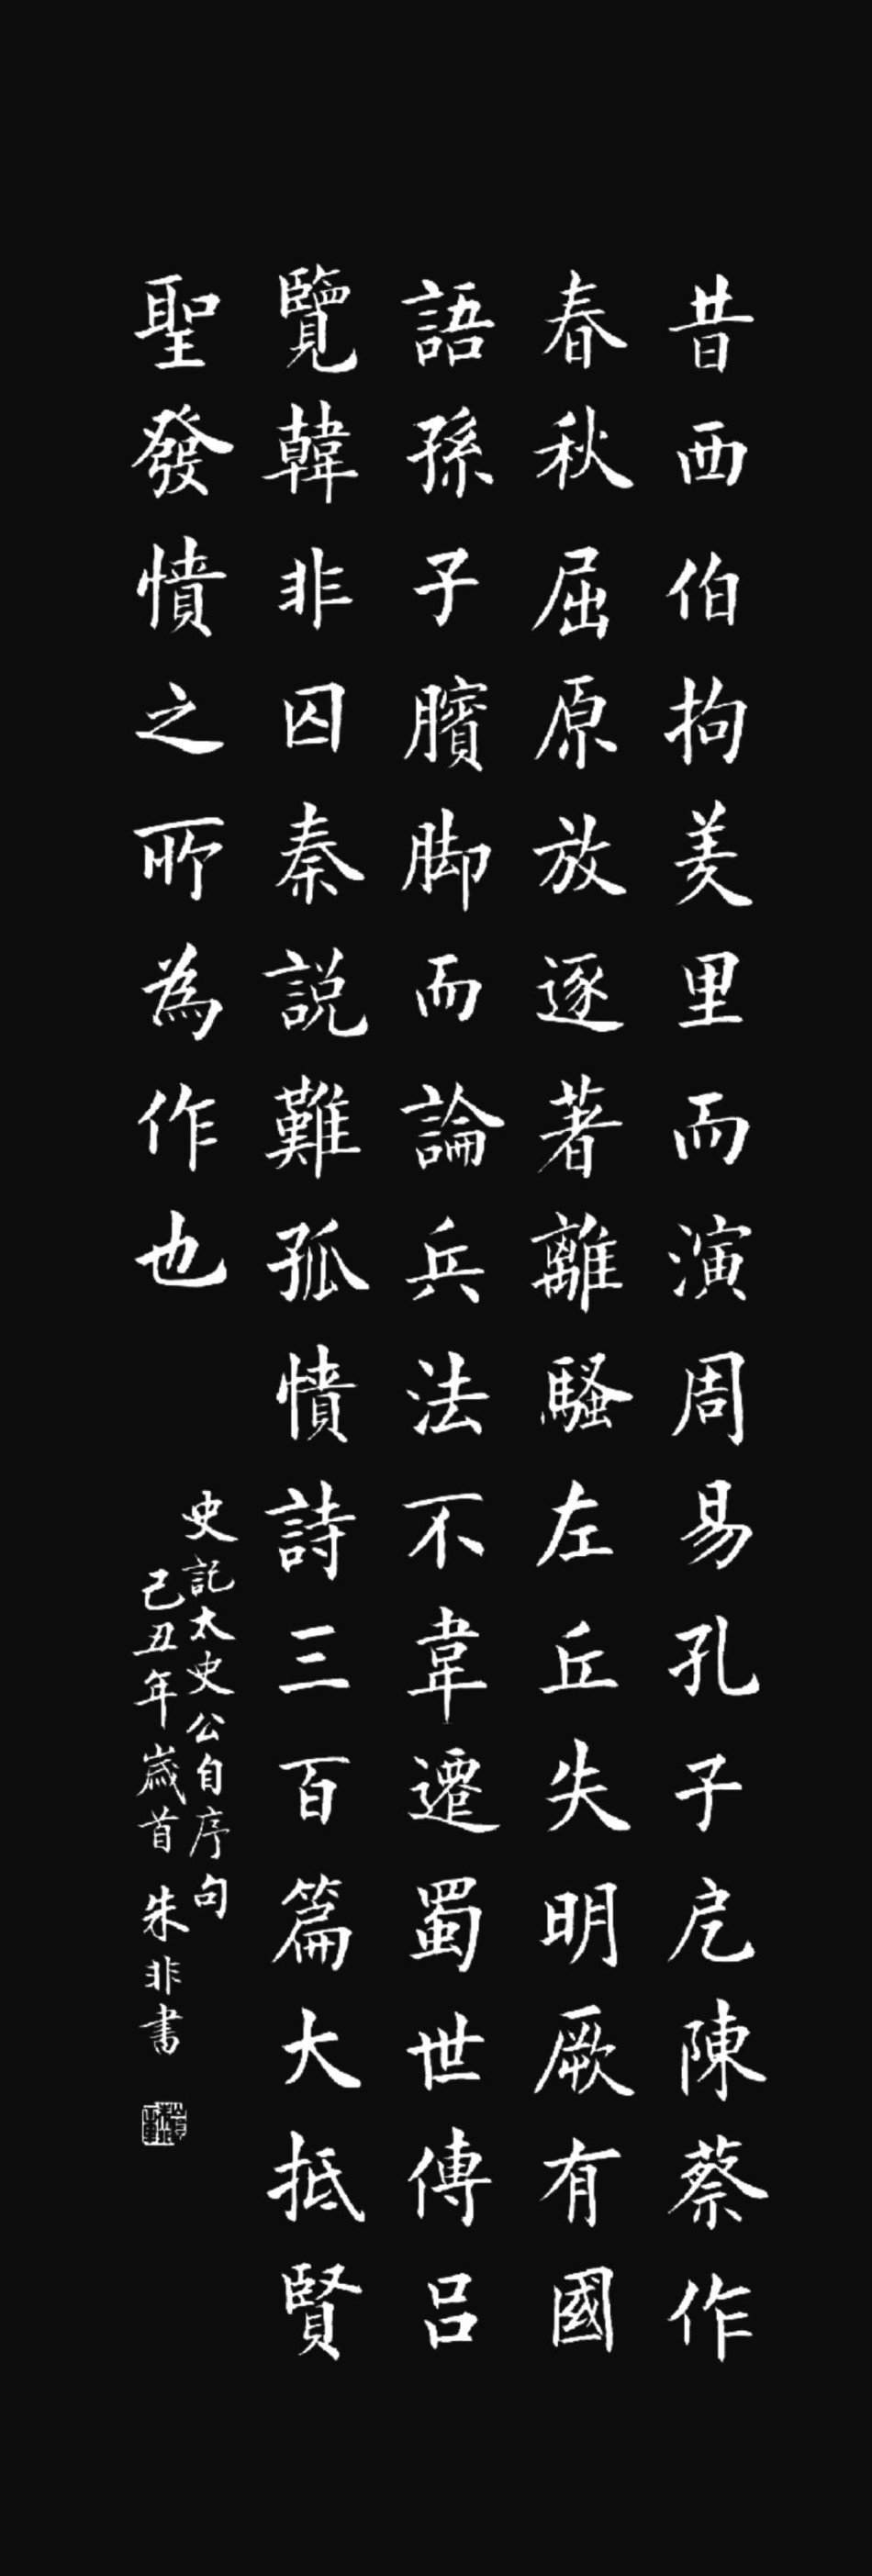 昔西伯拘羑里而演周易孔子戹陳蔡作
春秋屈原放逐著離騷左丘失明厥有國
語孫子臏脚而論兵法不韋遷蜀世傳呂
覽韓非囚秦説難孤憤詩三百篇大抵賢
聖發憤之所為作也
史記太史公自序句
己丑年歲首朱非書